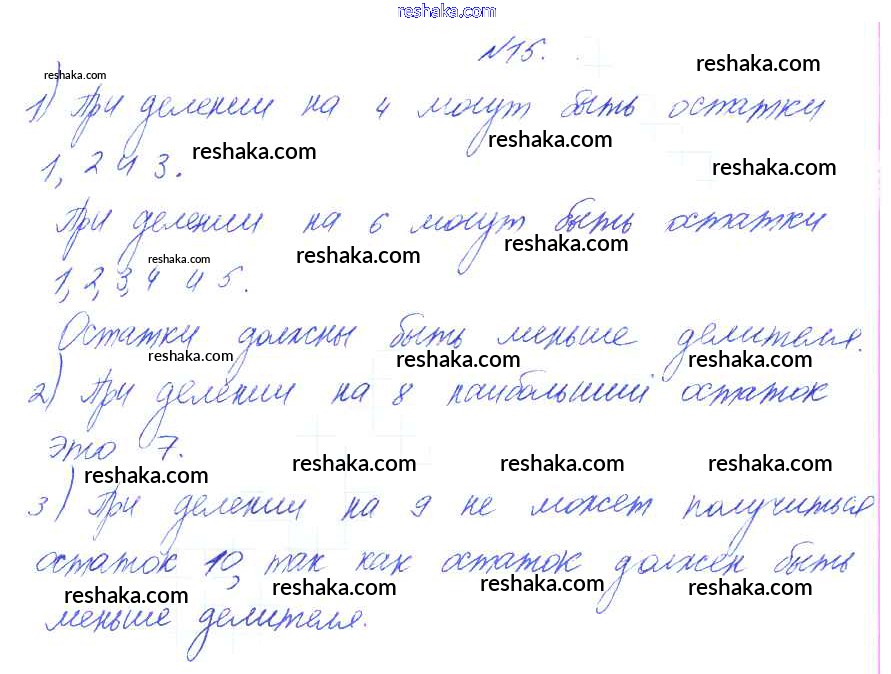 reshaka.com
№15.
reshaka.com
reshaka.com
1) При делении на 4 могут быть остатки
reshaka.com
1, 2 и 3.
reshaka.com
reshaka.com
При делении на 6 могут быть остатки
reshaka.com
reshaka.com
reshaka.com
1, 2, 3, 4 и 5.
Остатки должны быть меньше делителя.
reshaka.com
reshaka.com
reshaka.com
2) При делении на 8 наибольший остаток
это 7.
reshaka.com
reshaka.com
reshaka.com
reshaka.com
3) При делении на 9 не может получиться
остаток 10, так как остаток должен быть
reshaka.com
reshaka.com
reshaka.com
reshaka.com
меньше делителя.